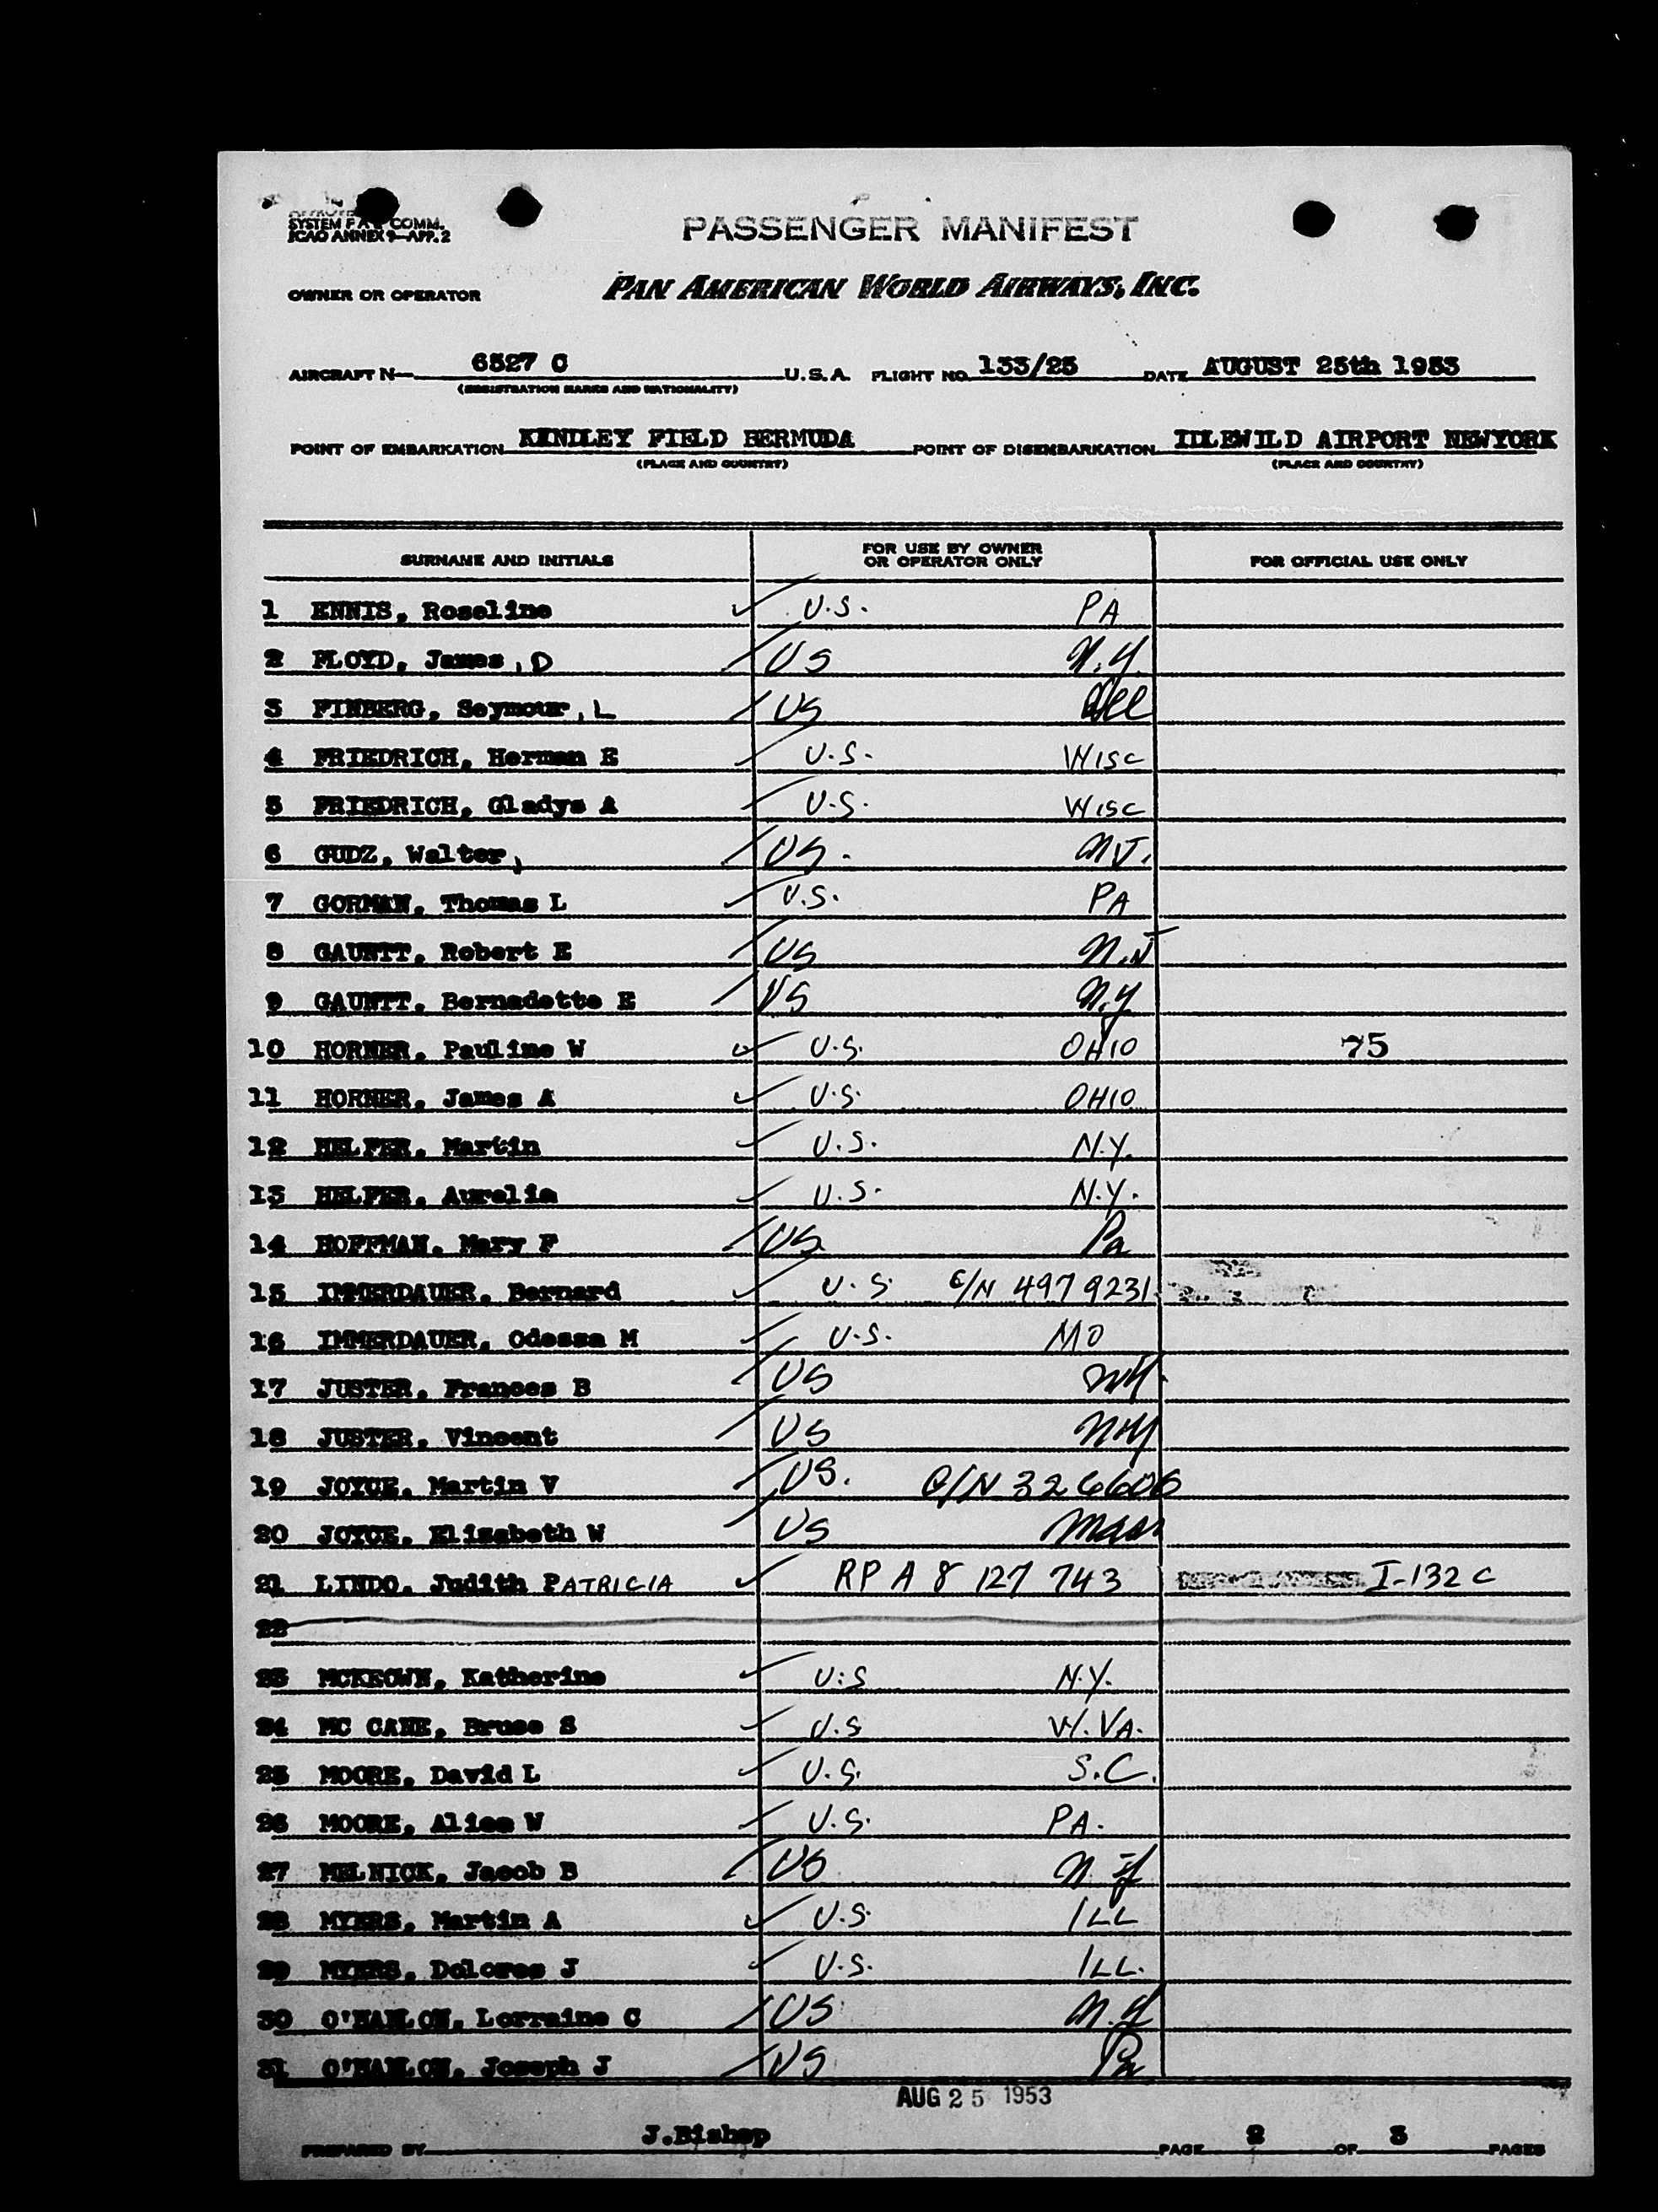 SYSTEM F A COMM.
ICAO ANNEX 9—APP. 2
PASSENGER MANIFEST
OWNER OR OPERATOR PAN AMERICAN WORLD AIRWAYS, INC.
AIRCRAFT N— 6527 C U.S.A. FLIGHT NO. 133/25 DATE AUGUST 25th 1953
(REGISTRATION MARKS AND NATIONALITY)
POINT OF EMBARKATION KINDLEY FIELD BERMUDA POINT OF DISEMBARKATION IDLEWILD AIRPORT NEWYORK
(PLACE AND COUNTRY) (PLACE AND COUNTRY)
SURNAME AND INITIALS FOR USE BY OWNER OR OPERATOR ONLY FOR OFFICIAL USE ONLY
1 ENNIS, Roseline U.S. PA
2 FLOYD, James, D US N.Y.
3 FINBERG, Seymour, L US
4 FRIEDRICH, Herman E U.S. WISC
5 FRIEDRICH, Gladys A U.S. WISC
6 GUDZ, Walter, US. NJ.
7 GORMAN, Thomas L U.S. PA
8 GAUNTT, Robert E US N.J
9 GAUNTT, Bernadette E US N.Y
10 HORNER, Pauline W U.S. OHIO 75
11 HORNER, James A U.S. OHIO
12 HELFER, Martin U.S. N.Y.
13 HELFER, Aurelia U.S. N.Y.
14 HOFFMAN, Mary F US Pa
15 IMMERDAUER, Bernard U.S. C/N 4979231
16 IMMERDAUER, Odessa M U.S. MO
17 JUSTER, Frances B US NY
18 JUSTER, Vincent US NY
19 JOYCE, Martin V US. C/N 326606
20 JOYCE, Elizabeth W US Mass
21 LINDO, Judith PATRICIA RP A 8 127 743 I-132 C
22
23 MCKEOWN, Katherine U.S N.Y.
24 MC CANE, Bruse S U.S W.VA.
25 MOORE, David L U.S. S.C.
26 MOORE, Alice W U.S. PA.
27 MELNICK, Jacob B US N.Y
28 MYERS, Martin A U.S. ILL
29 MYERS, Dolores J U.S. ILL.
30 O'HANLON, Lorraine C US N.Y
31 O'HANLON, Joseph J US Pa
AUG 25 1953
PREPARED BY J.Bishop PAGE 2 OF 3 PAGES